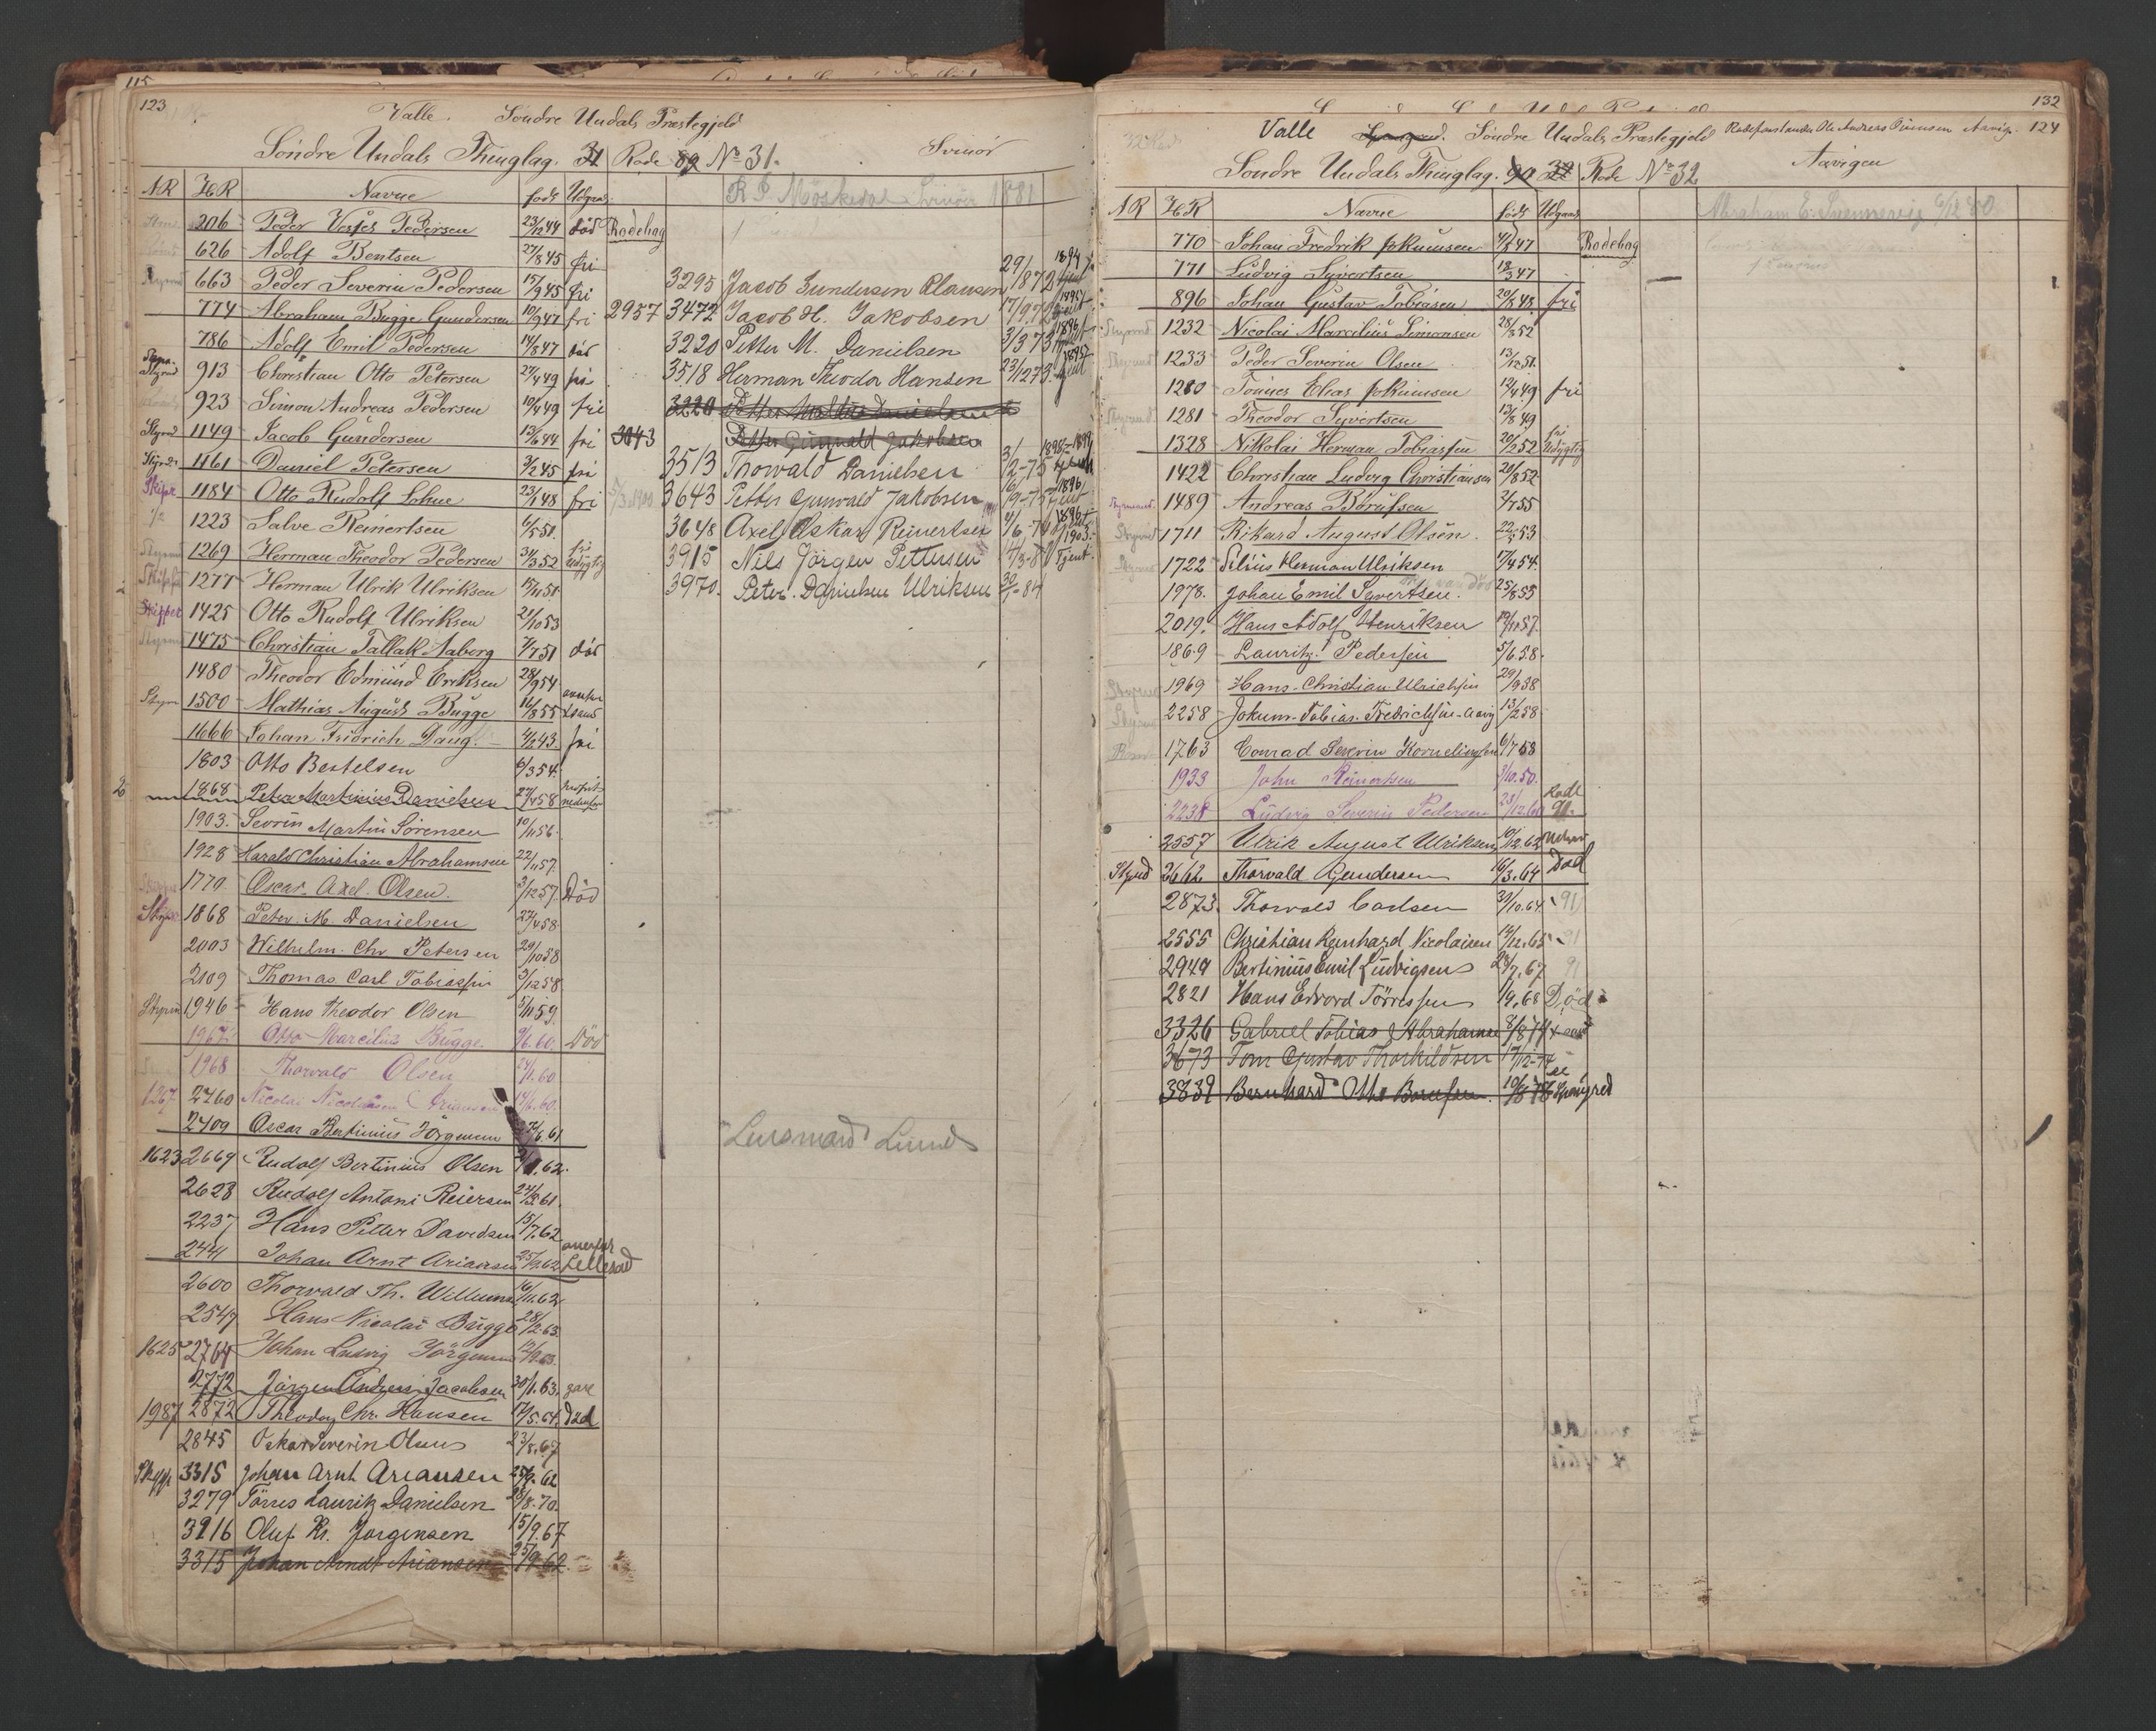 115
123
Valle. Söndre Undals Præstegjeld
Söndre Undals Thinglag. 31 Rode 89 No 31. Svinör
NR HR Navne födt Udgaaet R. P. Svinör 1881
206 Peder Pedersen 23/12 44 död Rodebog
626 Adolf Bentsen 27/8 45 fri
663 Peder Severin Pedersen 15/9 45 fri
774 Abraham Bugge Gundersen 10/9 47 fri
786 Adolf Emil Pedersen 14/8 47 död
913 Christian Otto Petersen 27/4 49 fri
923 Simon Andreas Pedersen 10/4 49 fri
Styrmd 1149 Jacob Gundersen 13/6 44 fri
1161 Daniel Petersen 3/2 45 fri
Skipr 1184 Otto Rudolf Lohne 23/1 48 fri
1223 Salve Reinertsen 6/5 51.
1269 Herman Theodor Pedersen 31/3 52 fri Udygtig
1277 Herman Ulrik Ulriksen 15/11 51
Skipper 1425 Otto Rudolf Ulriksen 21/10 53
1475 Christian Tallak Aaborg 7/7 51 död
1480 Theodor Edmund Eriksen 28/9 54
Styrm 1500 Mathias August Bugge 16/8 55
1666 Johan Fridrich Daug. 4/2 43. fri
1803 Otto Bertelsen 6/3 54.
1868 Peter Martinius Danielsen 27/4 58
1903. Sevrin Martin Sörensen 10/11 56.
1928 Harald Christian Abrahamsen 22/11 57.
1779. Oscar Axel Olsen. 3/12 57. Död
1868 Peter. M. Danielsen 27/4 58
2003 Wilhelm Chr Petersen 29/10 58
2109 Thomas Carl Tobiassen 3/12 58
Styrm 1946 Hans Theodor Olsen 5/11 59.
1967 Otto Marcelius Bugge 9/6. 60. Död
1968 Thorvald Olsen 24/1. 60
1267 2460 Nicolai Nicolaisen 14/6. 60.
2409 Oscar Bertinius Jörgensen 27/6. 61
1623 2669 Rudolf Bertinius Olsen 62.
2628 Rudolf Antoni Reiersen 61.
2237 Hans Petter Davidsen 15/7. 62
2441 Johan Arnt Ariansen 25/9. 62 Lillesand
2600 Thorvald Th. Willumsen 16/11. 62
2547 Hans Nicolai Bugge 28/2. 63
1625 2764 Johan Ludvig Jörgensen 63.
2772 Jörgen Andreas Jacobsen 30/1. 63.
1987 2872 Theodor Chr. Hansen 17/5. 64. Död
2845 Oskar Severin Olsen 23/8. 67
3315 Johan Arnt Ariansen 25/9. 62
3279 Törres Lauritz Danielsen 28/8. 70.
3216 Oluf Kr. Jörgensen 15/9. 67
3315 Johan Arndt Ariansen 25/9. 62
3295 Jacob Gundersen Clausen 29/1 872 1894
2957 3472 Jacob H. Jakobsen 17/9. 72 1895
3220 Petter M. Danielsen 3/3 73 1896
3518 Herman Theodor Hansen 23/12 73. 1895
3220 Petter Martin Danielsen
3043 Petter Gunvald Jakobsen
3513 Thorvald Danielsen 3/2-75
3643 Petter Gunvald Jakobsen 16/9-75 1896
3648 Axel Oskar Reinertsen 4/6-76
3915 Nils Jörgen Pettersen Tjent
3970. Peter. Danielsen Ulriksen 30/1-84
Lund
132
Valle Söndre Undals Præstegjeld Rodeforstander Ole Andreas Aavig. 124
Söndre Undals Thinglag. 90 32 Rode No 32 Aavigen
NR HR Navne födt Udgaaet Abraham E. 6/12 80
770 Johan Fredrik Jokumsen 4/8 47 Rodebog
771 Ludvig Syvertsen 12/3 47
896 Johan Gustav Tobiasen 20/8 48 fri
1232 Nicolai Marcelius Simonsen 28/3 52
1233 Peder Severin Olsen 13/12 51.
1280 Tönnes Elias Jokumsen 12/4 49 fri
1281 Theodor Syvertsen 13/8 49
1328 Nikolai Herman Tobiassen 20/2 52 fri Udygtig
1422 Christian Ludvig Christiansen 20/8 52
1489 Andreas Börufsen 2/7 55
1711 Rikard August Olsen. 22/5 53
1722 Silius Herman Ulriksen 17/4 54
1978. Johan Emil Syvertsen. Död 25/8 55
2019. Hans Adolf Henriksen 19/11 57.
1869 Lauritz Pedersen 5/6. 58.
1969 Hans-Christian Ulrichsen 29/9 38
2258 Jokum-Tobias-Fredrichsen-Aavig 13/2 58
1763 Conrad Severin Korneliussen 6/7 58
1933 John Reinertsen 3/10. 50.
2238 Ludvig Severin Pedersen 23/12. 60 Rode 91.
2557 Ulrik August Ulriksen 10/12. 62
2662 Thorvald Gundersen 16/3. 64 Död
2873. Thorvald Carlsen 30/10. 64. 91
2555 Christian Reinhard Nicolaisen 14/12. 65 91
2949 Bertinius Emil Ludvigsen 28/7. 67 91
2821 Hans Edvord Törressen 1/9. 68 Död
3326 Gabriel Tobias Abrahamsen 8/8 74
3673 Tom Gustav Thorkildsen 17/12-74
3839 Bernhard Otto Borufsen. 10/8 78 Spangred